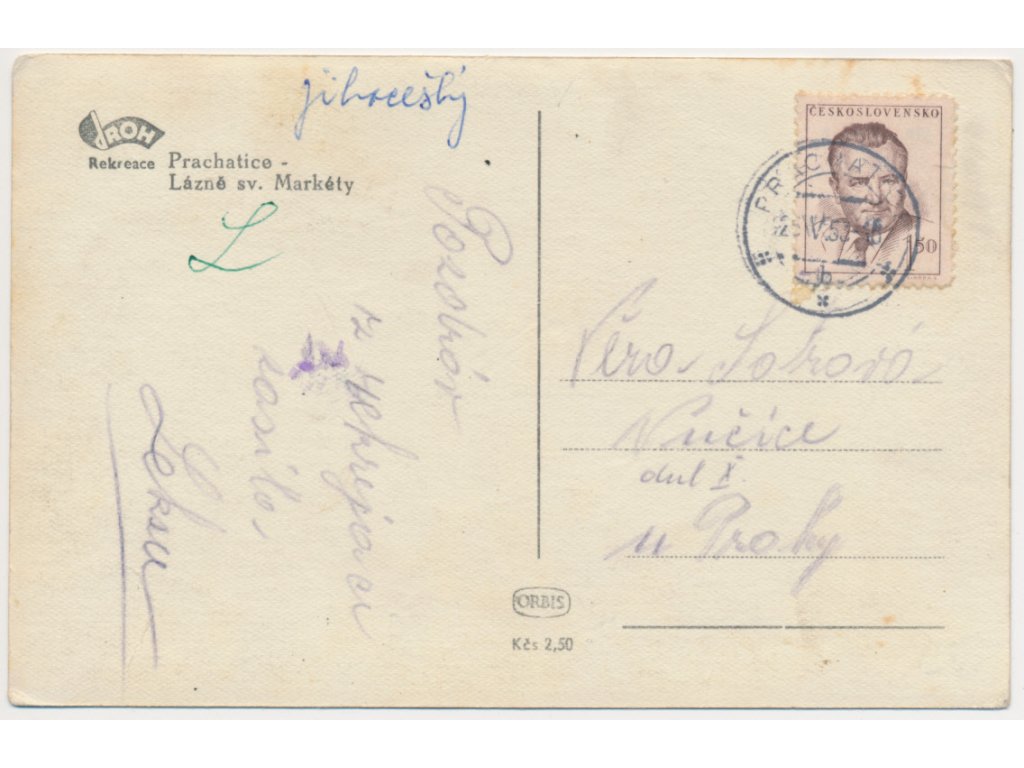 jihočeský
ROH
Rekreace Prachatice -
Lázně sv. Markéty
L
Pozdrav
z rekreace
zasílá
ČESKOSLOVENSKO
1.50
PRACHATI
b
Věra
Nučice
důl X.
u Prahy
ORBIS
Kčs 2,50